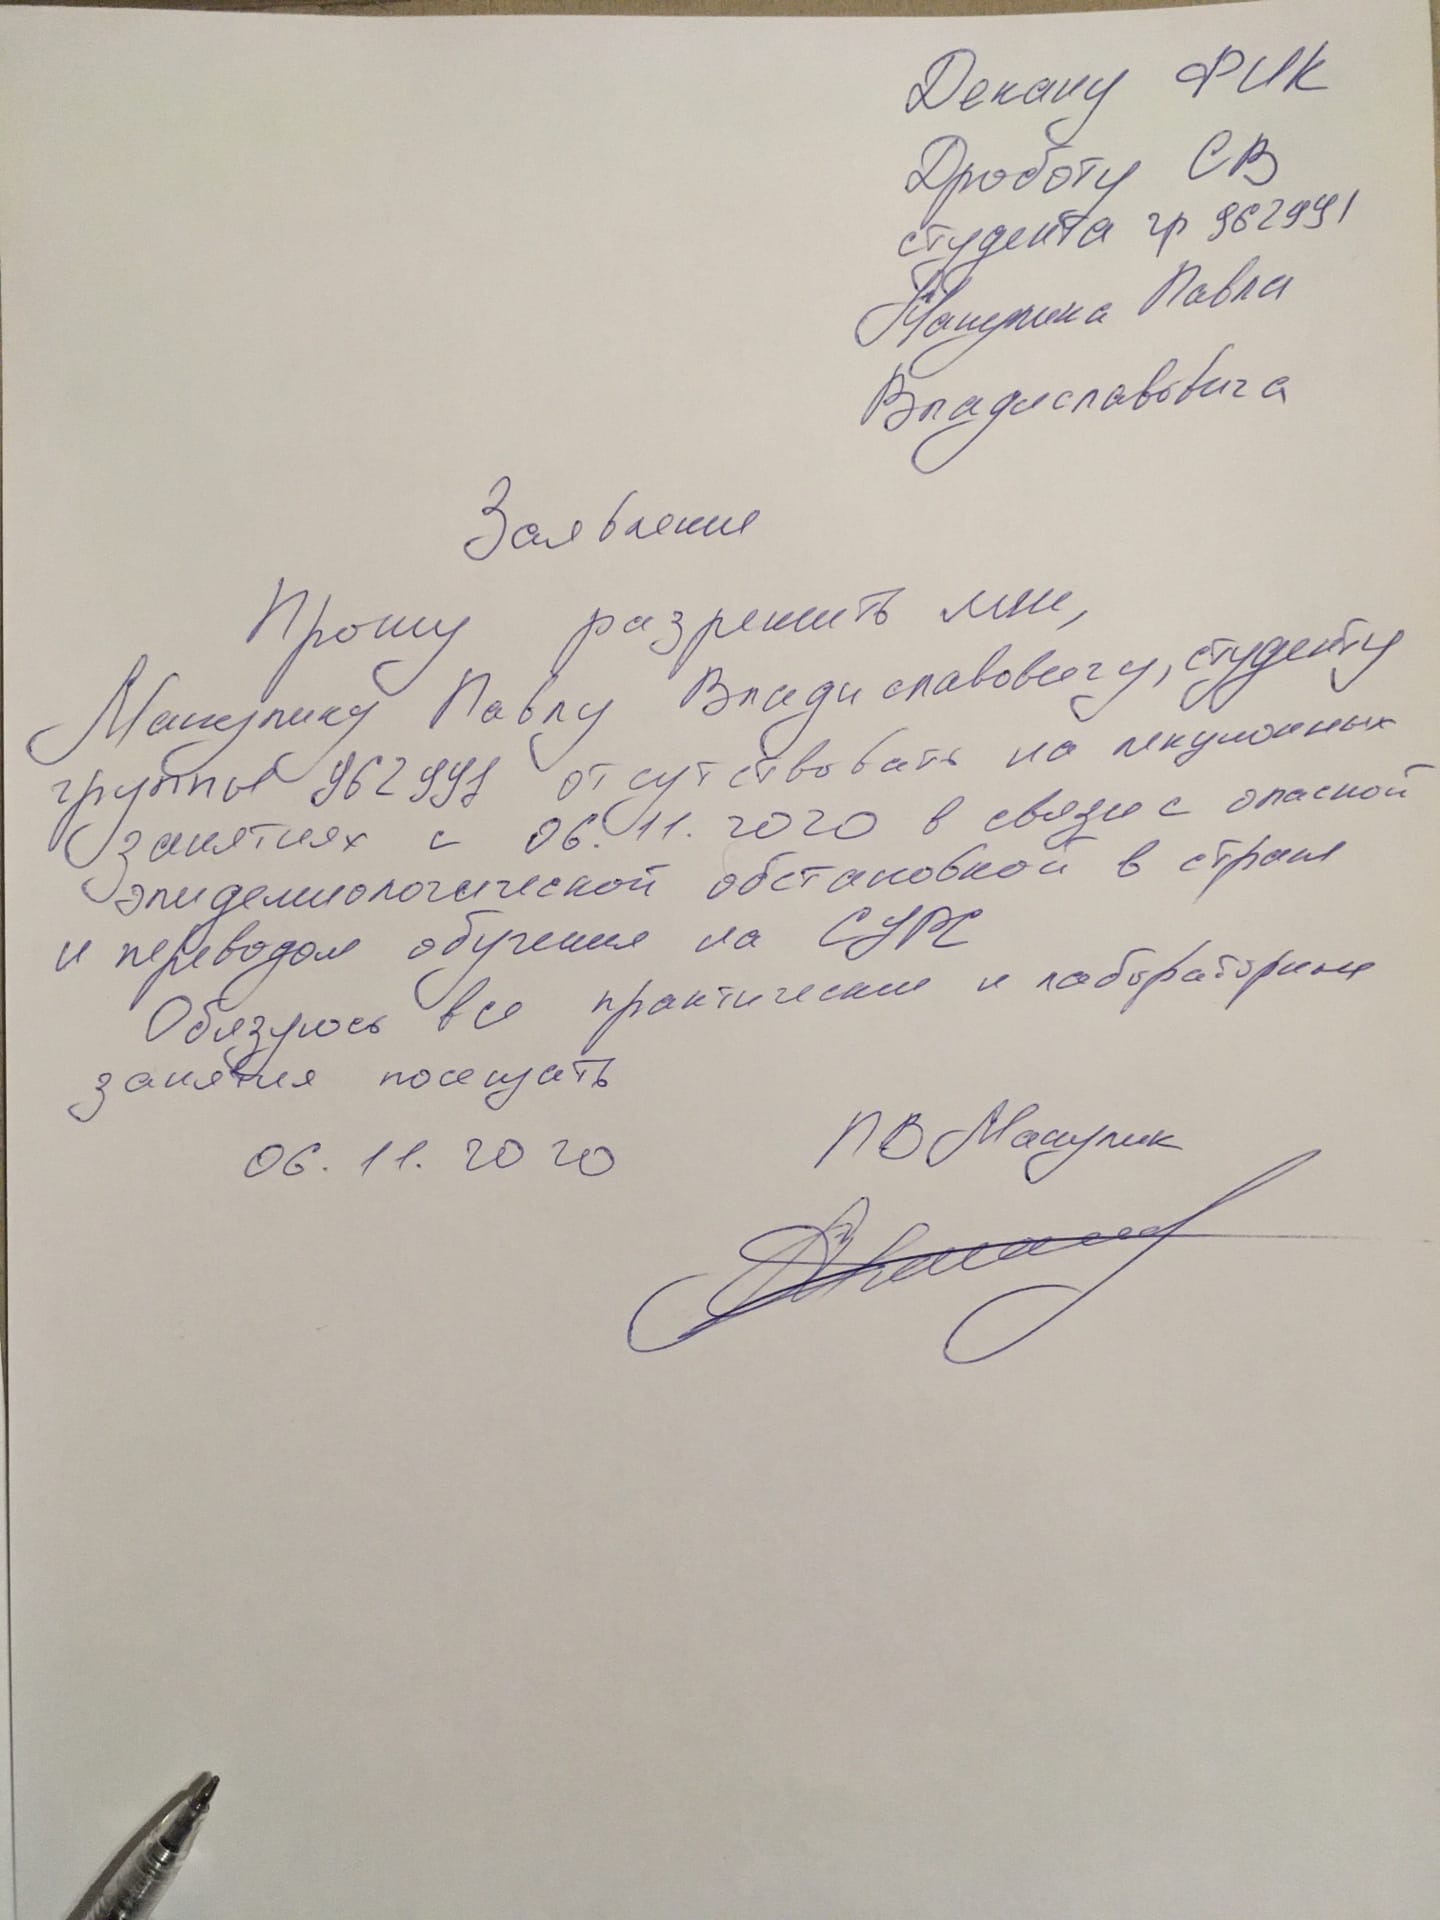 Декану ФИК
Дроботу СВ
студента гр 962991
Павла
Владиславовича
Заявление
Прошу разрешить мне,
Павлу Владиславовичу, студенту
группы 962991 отсутствовать на лекционных
занятиях с 06.11.2020 в связи с опасной
эпидемиологической обстановкой в стране
и переводом обучения на СУРС
Обязуюсь все практические и лабораторные
занятия посещать
06.11.2020 ПВ